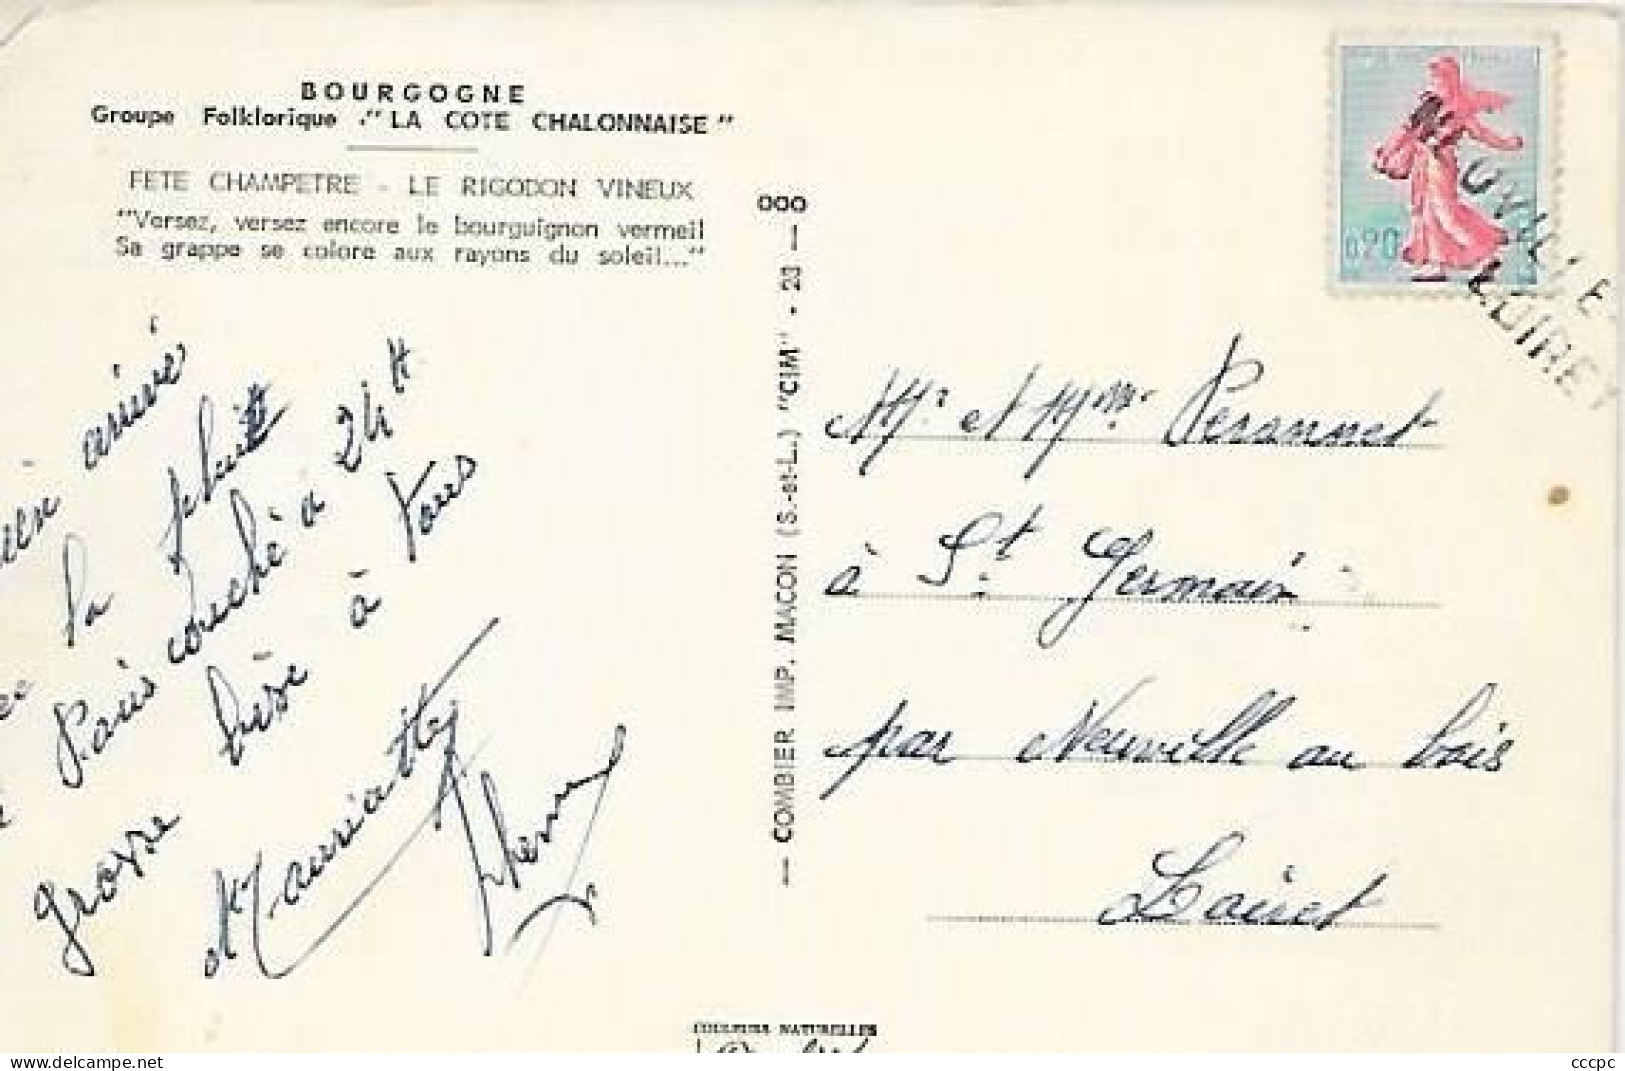 BOURGOGNE
Groupe Folklorique "LA COTE CHALONNAISE"
FETE CHAMPETRE - LE RIGODON VINEUX
"Versez, versez encore le bourguignon vermeil
Sa grappe se colore aux rayons du soleil..."
arrivé
la pluie
Paris couché à 24 H
grosse bise à tous
Mauriatte
COMBIER IMP. MACON (S.-et-L.) "CIM" - 20
000
0,20
NEUVILLE-
LOIRET
Mr et Mme Personnet
à St Germain
par Neuville au bois
Loiret
COULEURS NATURELLES
cccpc